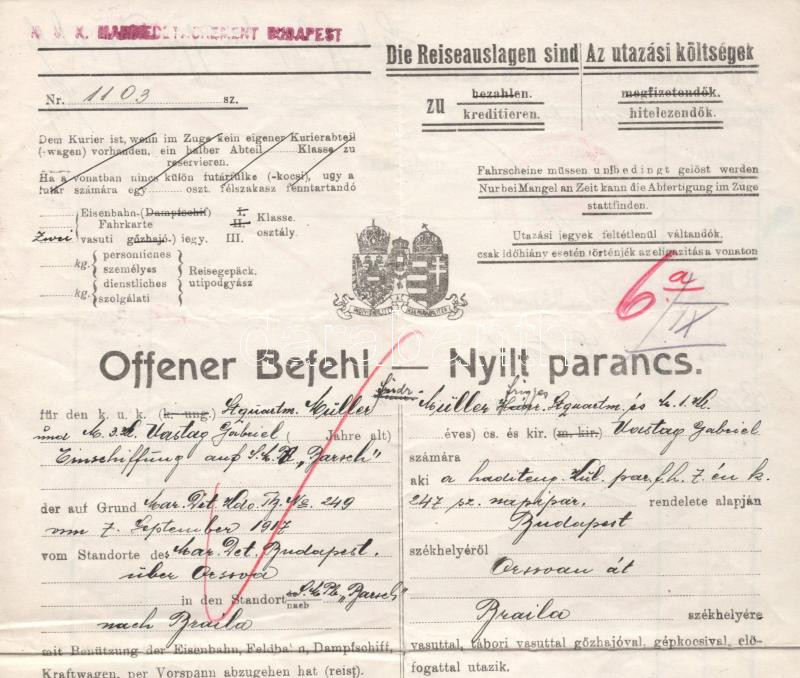 K. U. K. MARINEDETACHEMENT BUDAPEST
Nr. 1103 sz.
Dem Kurier ist, wenn im Zuge kein eigener Kurierabteil
(-wagen) vorhanden, ein halber Abteil Klasse zu
reservieren.
Ha a vonatban nincs külön futárfülke (-kocsi), ugy a
futár számára egy oszt. félszakasz fenntartandó
Eisenbahn-(Dampfschif) I.
Fahrkarte II. Klasse.
Zwei vasuti gőzhajó.) jegy. III. osztály.
kg. personliches
személyes Reisegepäck.
dienstliches utipodgyász
kg. szolgálati
Die Reiseauslagen sind Az utazási költségek
zu bezahlen. megfizetendők.
kreditieren. hitelezendők.
Fahrscheine müssen unbedingt gelöst werden
Nur bei Mangel an Zeit kann die Abfertigung im Zuge
stattfinden.
Utazási jegyek feltétlenül váltandók.
csak időhiány esetén történjék az eligazitása vonaton
6 a
/IX
Offener Befehl — Nyilt parancs.
für den k. u. k. (k. ung.) Lquartm. Müller
und M. 3. Kl. Vastag Gábriel ( Jahre alt)
Einschiffung auf S. M. "Barsch"
der auf Grund Mar. Det. Kdo. Tg. No. 249
vom 7. September 1917
vom Standorte des Mar. Det. Budapest.
über Orsova
in den Standort des
nach "Barsch"
nach Braila
mit Benützung der Eisenbahn, Feldbahn, Dampfschiff,
Kraftwagen, per Vorspann abzugehen hat (reist).
Müller Lquartm. és
éves) cs. és kir. (m. kir.) Vastag Gábriel
számára
aki a haditeng. Kül. par. f. h. 7. én k.
247 sz. napipar. rendelete alapján
Budapest
székhelyéről
Orsovan át
Braila székhelyére
vasuttal, tábori vasuttal gőzhajóval, gépkocsival, elő-
fogattal utazik.